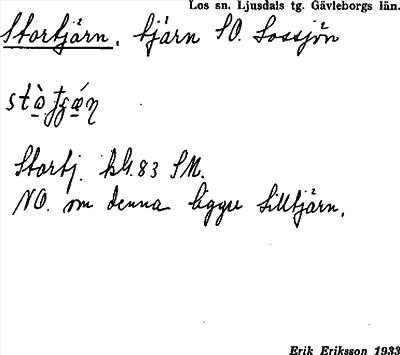 Los sn. Ljusdals tg. Gävleborgs län.
Stortjärn, tjärn SO. Lossjön
Stortj. kbl. 83 SM.
NO. om denna ligger Lilltjärn.
Erik Eriksson 1933